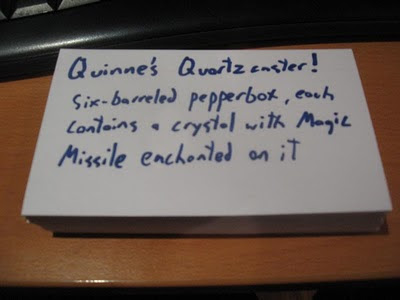 Quinne's Quartzcaster!
Six-barreled pepperbox, each
contains a crystal with Magic
Missile enchanted on it